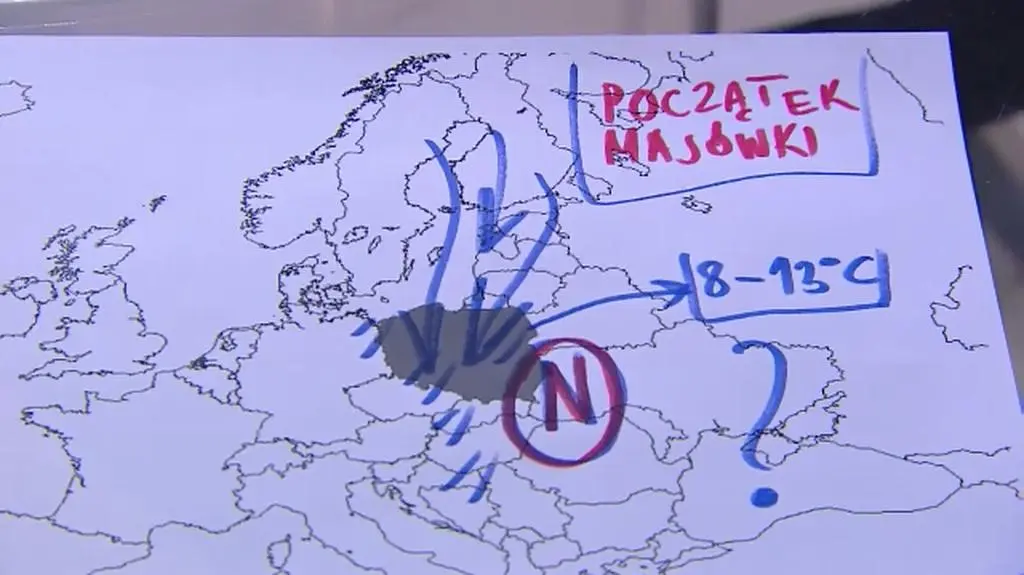 POCZĄTEK
MASÓWKI
8-13°C
N
?